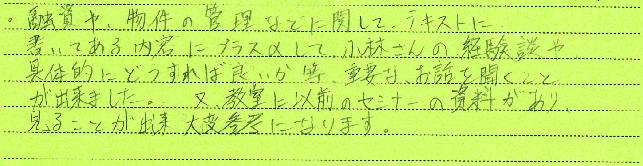 。融資や、物件の管理などに関して、テキストに
書いてある内容にプラスαして、小林さんの経験談や
具体的にどうすれば良いか等、重要な、お話を聞くこと
が出来ました。又、教室に以前のセミナーの資料があり、
見ることが出来、大変参考になります。